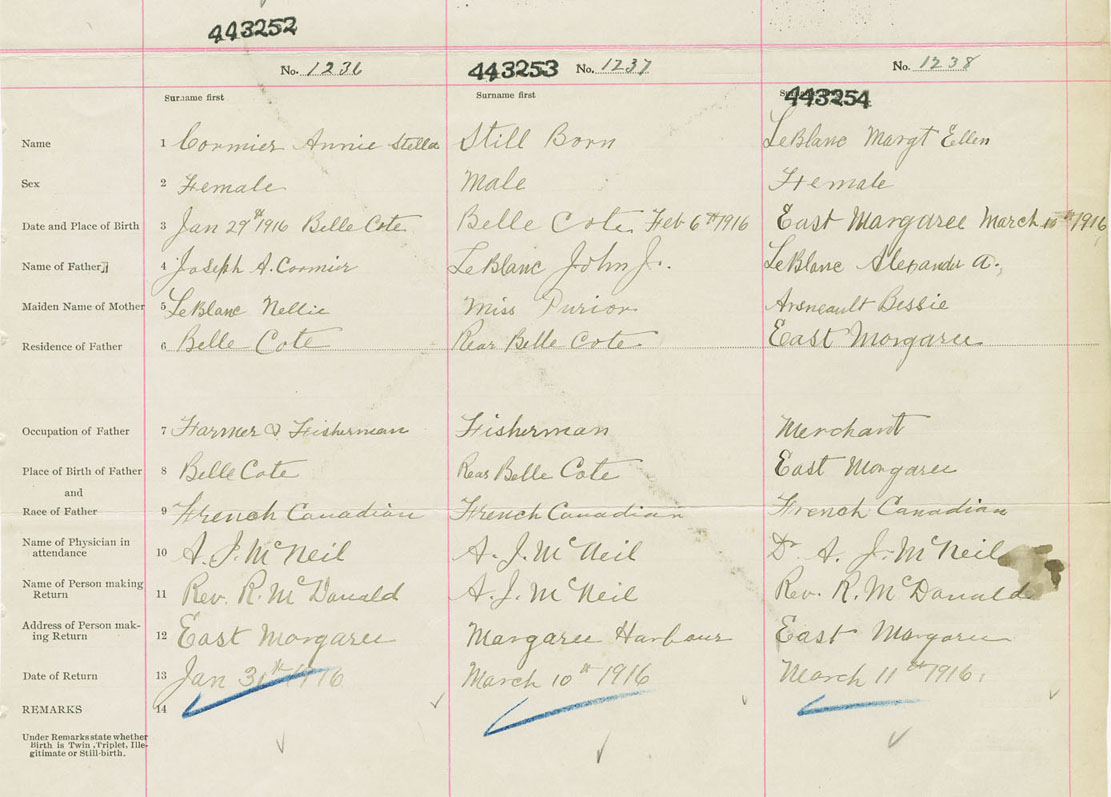 443252
No. 1236 443253 No. 1237 No. 1238
Surname first Surname first 443254
Name 1 Cormier Annie Stella Still Born LeBlanc Margt Ellen
Sex 2 Female Male Female
Date and Place of Birth 3 Jan 29th 1916 Belle Cote Belle Cote Feb 6th 1916 East Margaree March 10th 1916
Name of Father 4 Joseph A. Cormier LeBlanc John J. LeBlanc Alexander A.
Maiden Name of Mother 5 LeBlanc Nellie Miss Arsneault Bessie
Residence of Father 6 Belle Cote Rear Belle Cote East Margaree
Occupation of Father 7 Farmer & Fisherman Fisherman Merchant
Place of Birth of Father 8 Belle Cote Rear Belle Cote East Margaree
and
Race of Father 9 French Canadian French Canadian French Canadian
Name of Physician in
attendance 10 A. J. McNeil A. J. McNeil Dr A. J. McNeil
Name of Person making
Return 11 Rev. R. McDonald A. J. McNeil Rev. R. McDonald
Address of Person mak-
ing Return 12 East Margaree Margaree Harbour East Margaree
Date of Return 13 Jan 31th 1916 March 10th 1916 March 11th 1916.
REMARKS 14
Under Remarks state whether
Birth is Twin, Triplet, Ille-
gitimate or Still-birth.